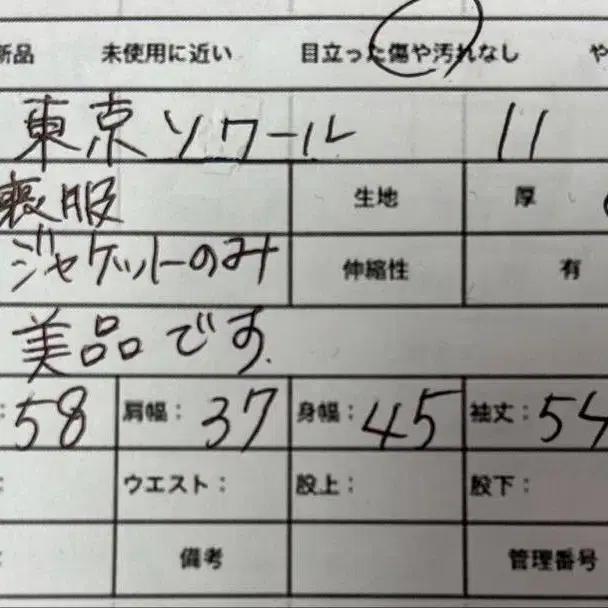 新品 未使用に近い 目立った傷や汚れなし や
東京ソワール 11
喪服 生地 厚
ジャケットのみ 伸縮性 有
美品です.
: 58 肩幅: 37 身幅: 45 袖丈: 54
: ウエスト: 股上: 股下:
備考 管理番号